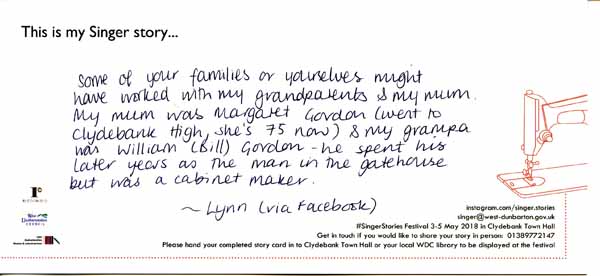 This is my Singer story...
Some of your families or yourselves might
have worked with my grandparents & my mum.
My mum was Margaret Gordon (went to
Clydebank High, she's 75 now) & my grampa
was William (Bill) Gordon - he spent his
later years as the man in the gatehouse
but was a cabinet maker.
~ Lynn (via Facebook)
instagram.com/singer.stories
singer@west-dunbarton.gov.uk
#SingerStories Festival 3-5 May 2018 in Clydebank Town Hall
Get in touch if you would like to share your story in person: 01389772147
Please hand your completed story card in to Clydebank Town Hall or your local WDC library to be displayed at the festival